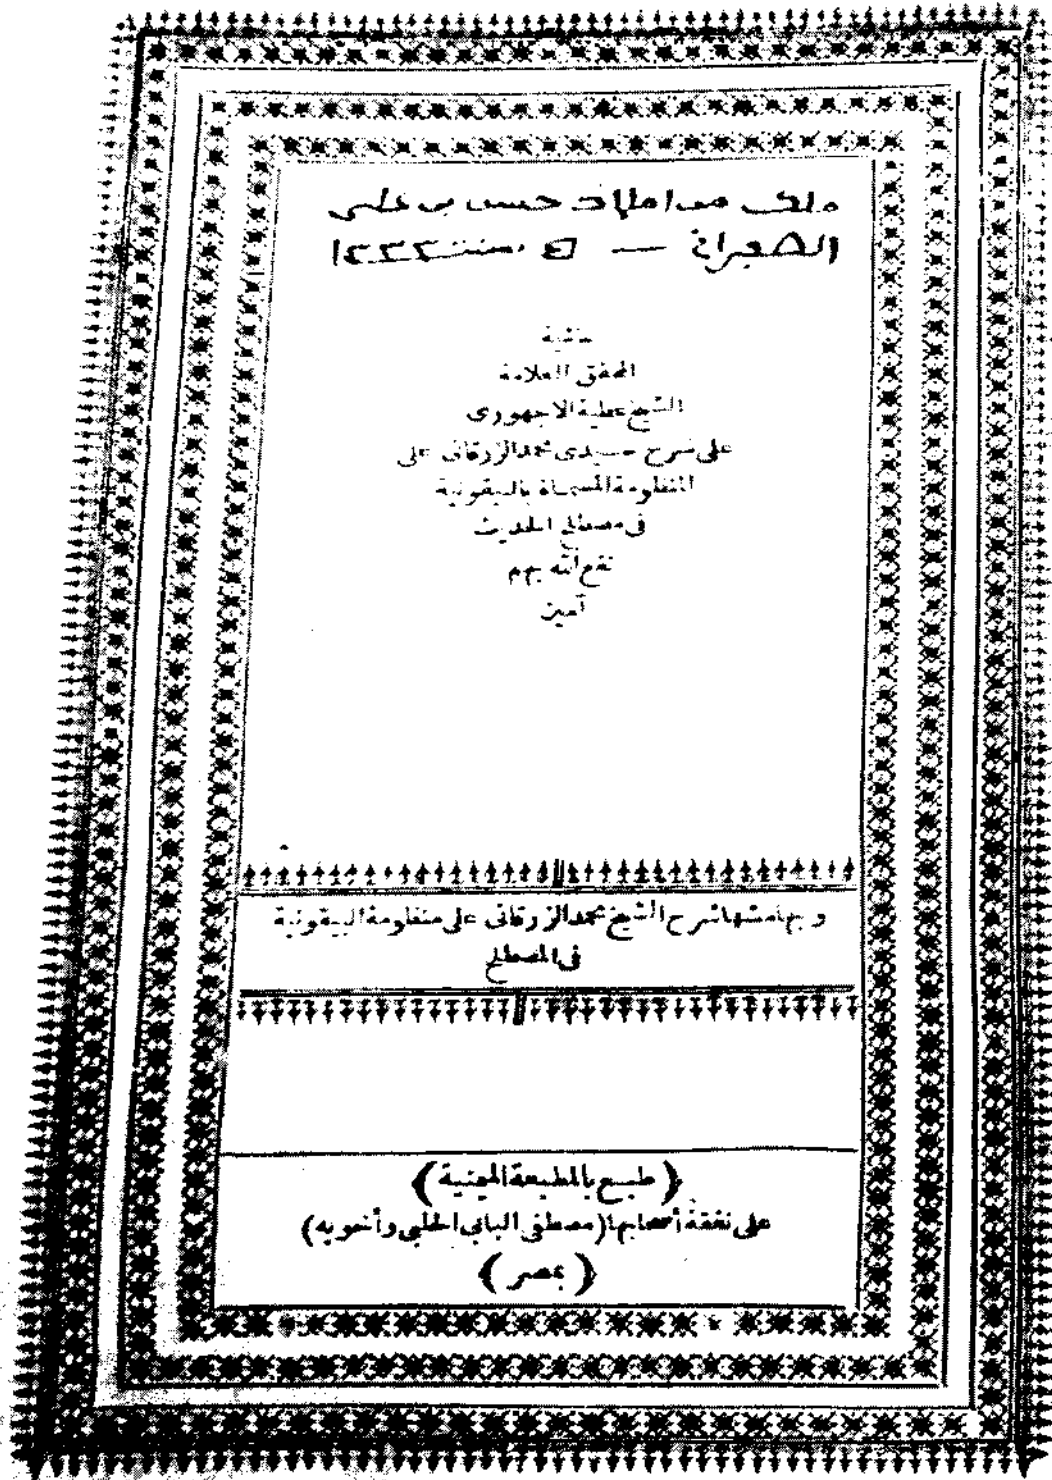 ملك من املاك حسن بن علي
حاشية
المحقق العلامة
الشيخ عطية الاجهورى
على شرح سيدى محمد الزرقانى على
المنظومة المسماة بالبيقونية
فى مصطلح الحديث
نفع الله بهم
آمين
وبهامشها شرح الشيخ محمد الزرقانى على منظومة البيقونية
فى المصطلح
(طبع بالمطبعة الميمنية)
على نفقة أصحابها (مصطفى البابى الحلبى وأخويه)
(بمصر)